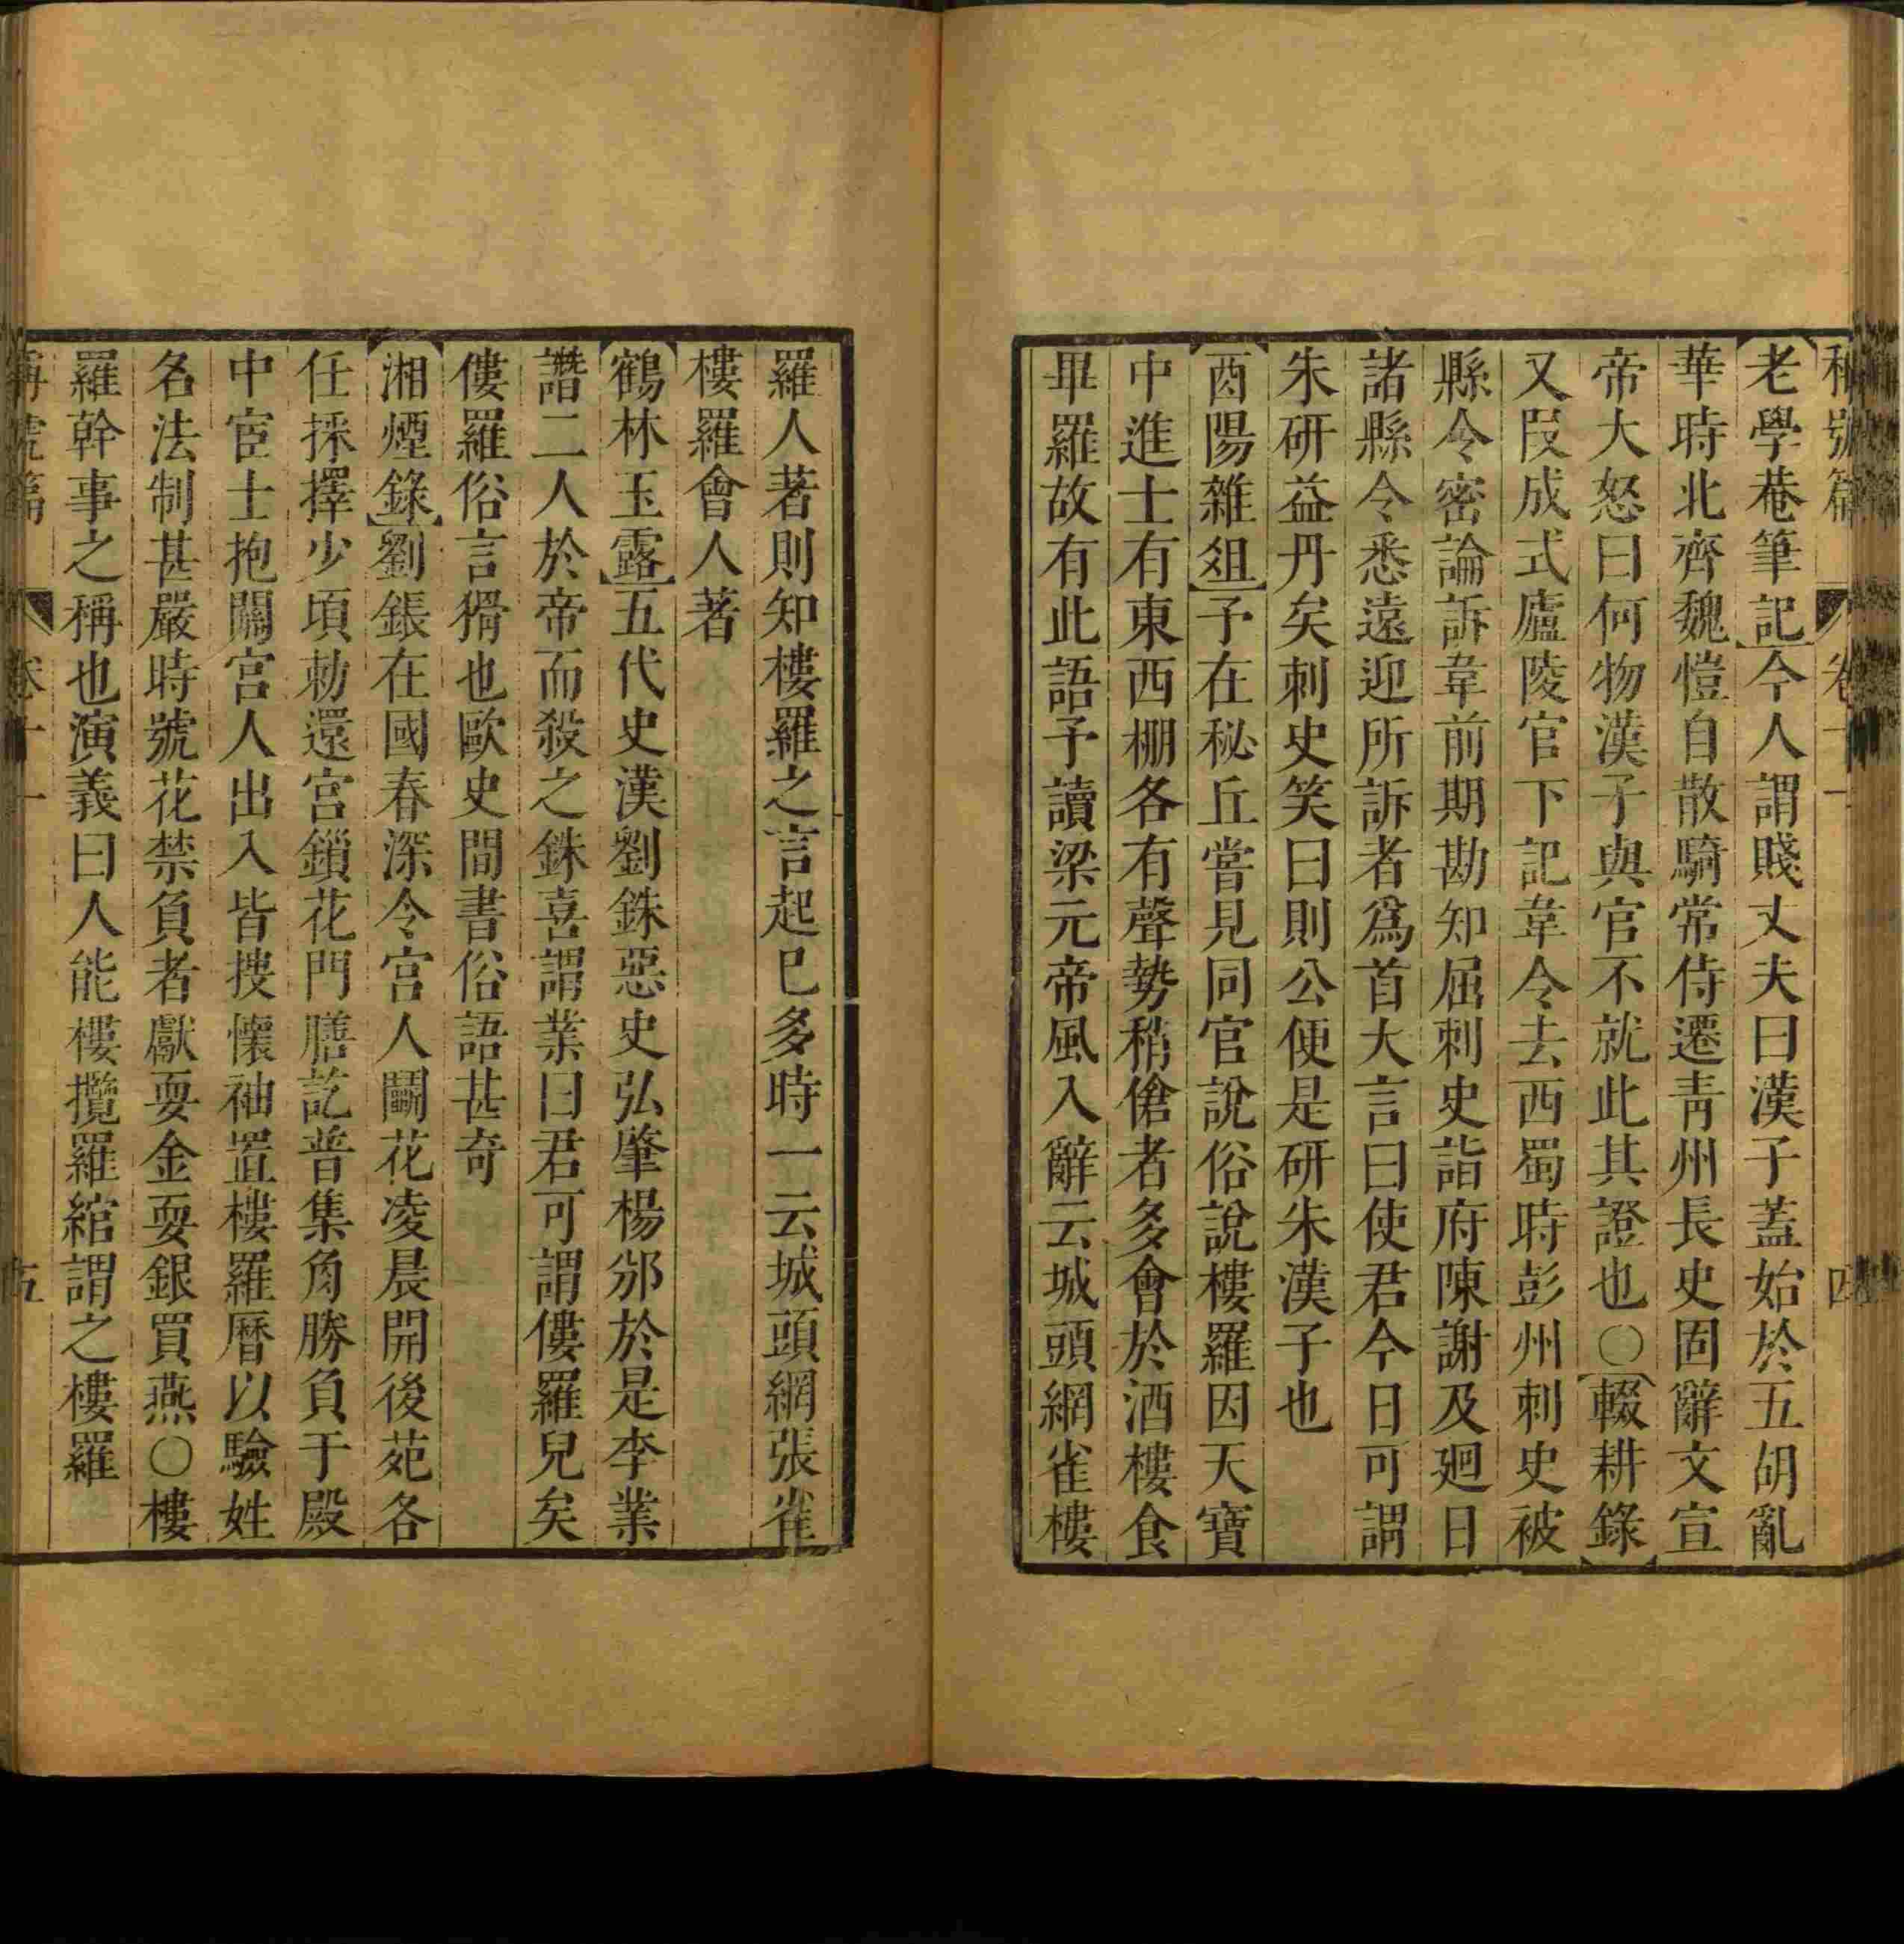 稱號篇 卷十一 四
老學菴筆記今人謂賤丈夫曰漢子蓋始於五胡亂
華時北齊魏愷自散騎常侍遷青州長史固辭文宣
帝大怒曰何物漢子與官不就此其證也○輟耕錄
又叚成式廬陵官下記韋令去西蜀時彭州刺史被
縣令密論訴韋前期勘知屈刺史詣府陳謝及廻日
諸縣令悉遠迎所訴者爲首大言曰使君今日可謂
朱研益丹矣刺史笑曰則公便是研朱漢子也
酉陽雜俎予在秘丘嘗見同官說俗說樓羅因天寶
中進士有東西棚各有聲勢稍傖者多會於酒樓食
畢羅故有此語予讀梁元帝風入辭云城頭網雀樓
羅人著則知樓羅之言起已多時一云城頭網張雀
樓羅會人著
鶴林玉露五代史漢劉銖惡史弘肇楊邠於是李業
譖二人於帝而殺之銖喜謂業曰君可謂僂羅兒矣
僂羅俗言猾也歐史間書俗語甚奇
湘煙錄劉鋹在國春深令宮人鬭花凌晨開後苑各
任採擇少頃勅還宮鎖花門膳訖普集角勝負于殿
中宦士抱關宮人出入皆搜懷袖置樓羅曆以驗姓
名法制甚嚴時號花禁負者獻耍金耍銀買燕○樓
羅幹事之稱也演義曰人能樓攬羅綰謂之樓羅
稱號篇 卷十一 五